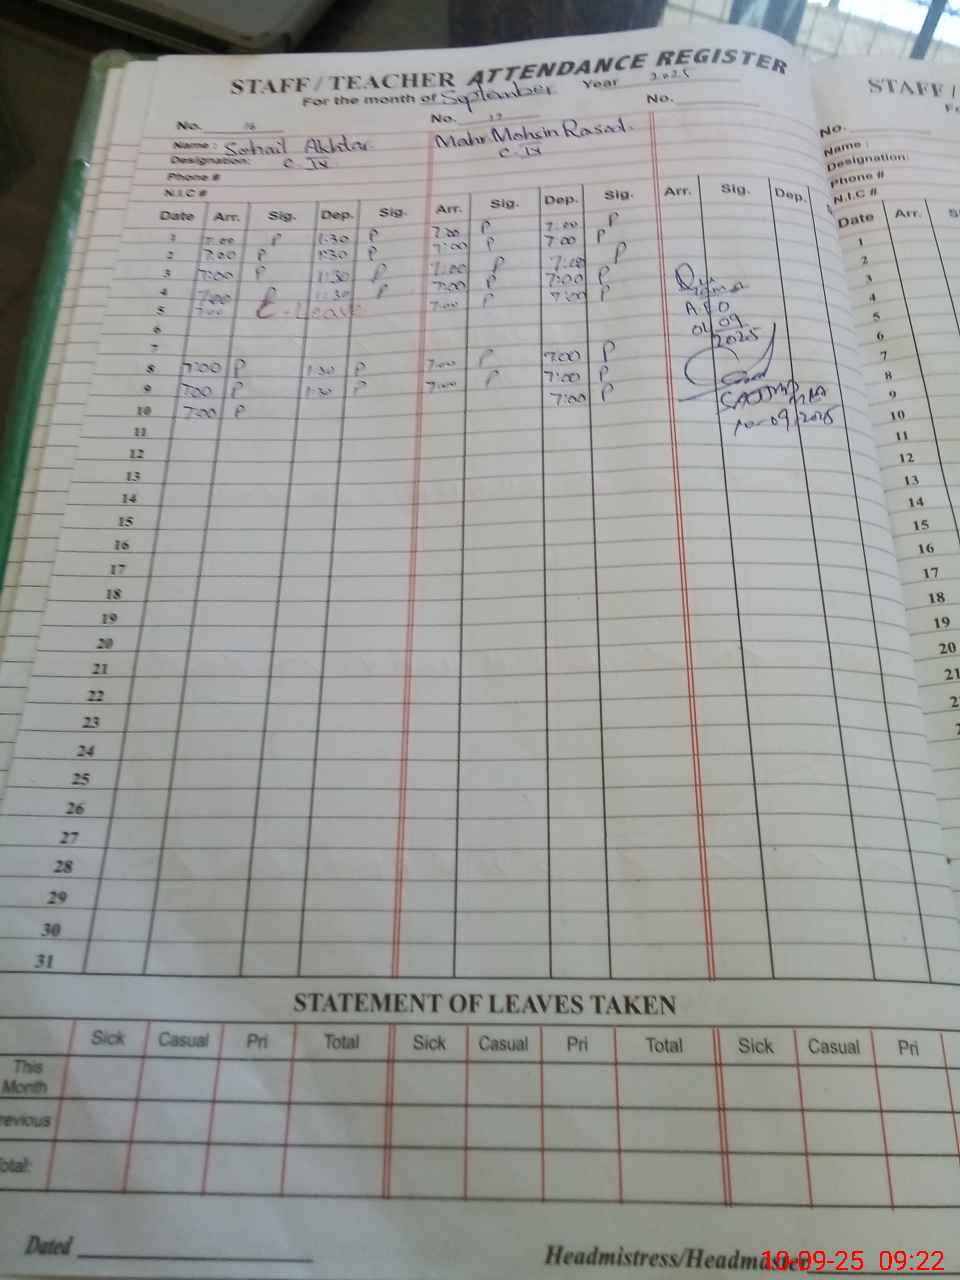 STAFF / TEACHER ATTENDANCE REGISTER
For the month of September Year 2025
No. 16 No. 17 No.
Name : Sohail Akhtar Mahr Mohsin Rasool.
Designation: C. IV C. IV
Phone #
N.I.C #
Date Arr. Sig. Dep. Sig. Arr. Sig. Dep. Sig. Arr. Sig. Dep.
1 7:00 P 1:30 P 7:00 P 7:00 P
2 7:00 P 1:30 P 7:00 P 7:00 P
3 7:00 P 1:30 P 7:00 P 7:00 P
4 7:00 P 1:30 P 7:00 P 7:00 P
5 7:00 C-Leave 7:00 P 7:00 P
6
7
8 7:00 P 1:30 P 7:00 P 7:00 P
9 7:00 P 1:30 P 7:00 P 7:00 P
10 7:00 P 7:00 P
11
12
13
14
15
16
17
18
19
20
21
22
23
24
25
26
27
28
29
30
31
09
2025
10-09/2025
STATEMENT OF LEAVES TAKEN
Sick Casual Pri Total Sick Casual Pri Total Sick Casual Pri
This Month
revious
otal:
Dated
Headmistress/Headmaster
10-09-25 09:22
STAFF /
No.
Name :
Designation:
Phone #
N.I.C #
Date Arr.
1
2
3
4
5
6
7
8
9
10
11
12
13
14
15
16
17
18
19
20
21